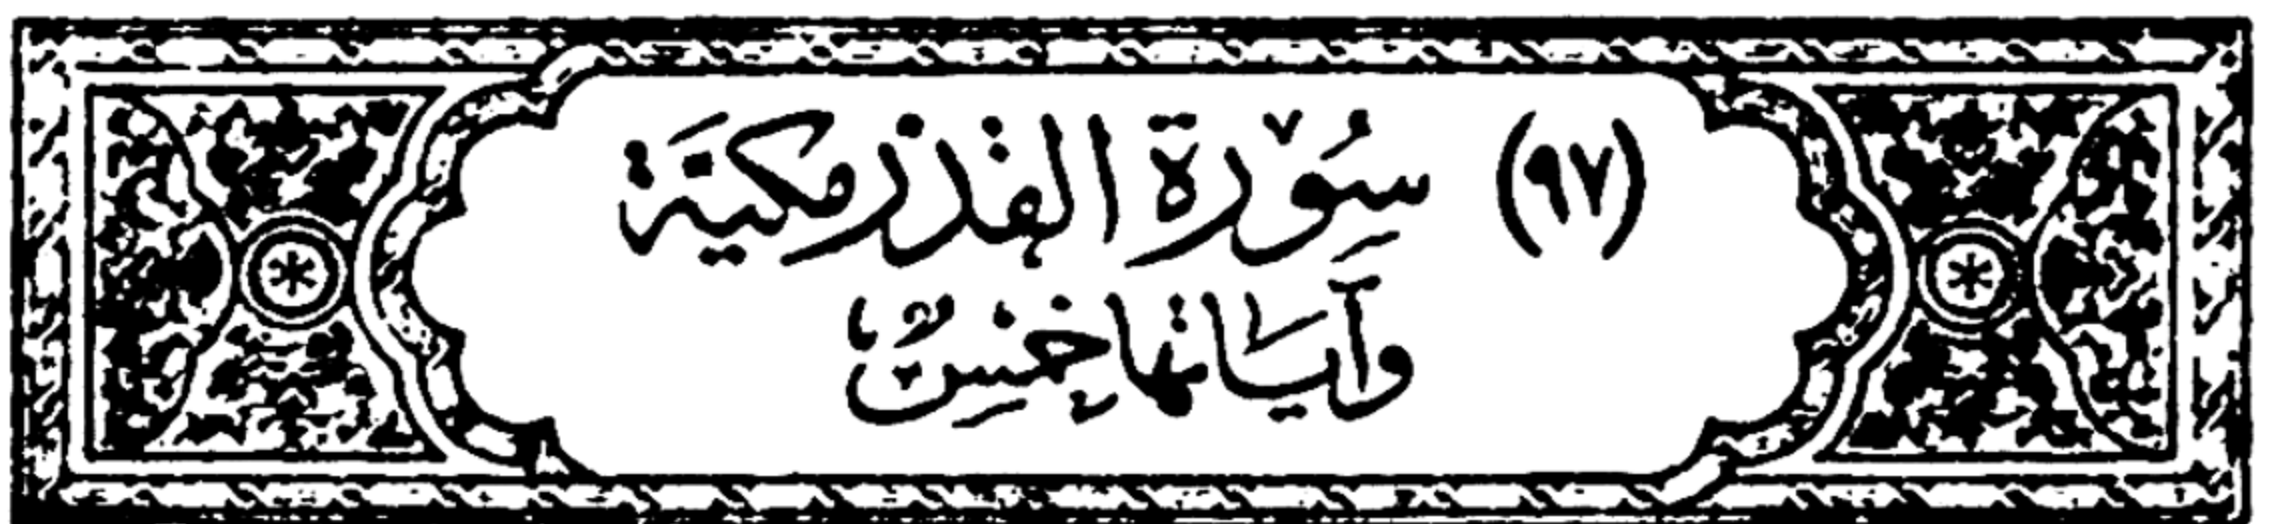 (٩٧) سُوْرَة القدر مكيَّة
وآياتها خَمْسٌ